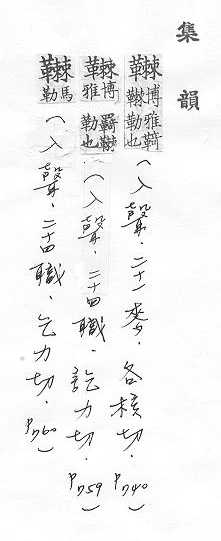 集韻
博雅勒也（入聲．二十一麥．各核切．P740）
博雅羈勒也（入聲．二十四職．訖力切．P759）
馬勒（入聲．二十四職．乞力切．P760）